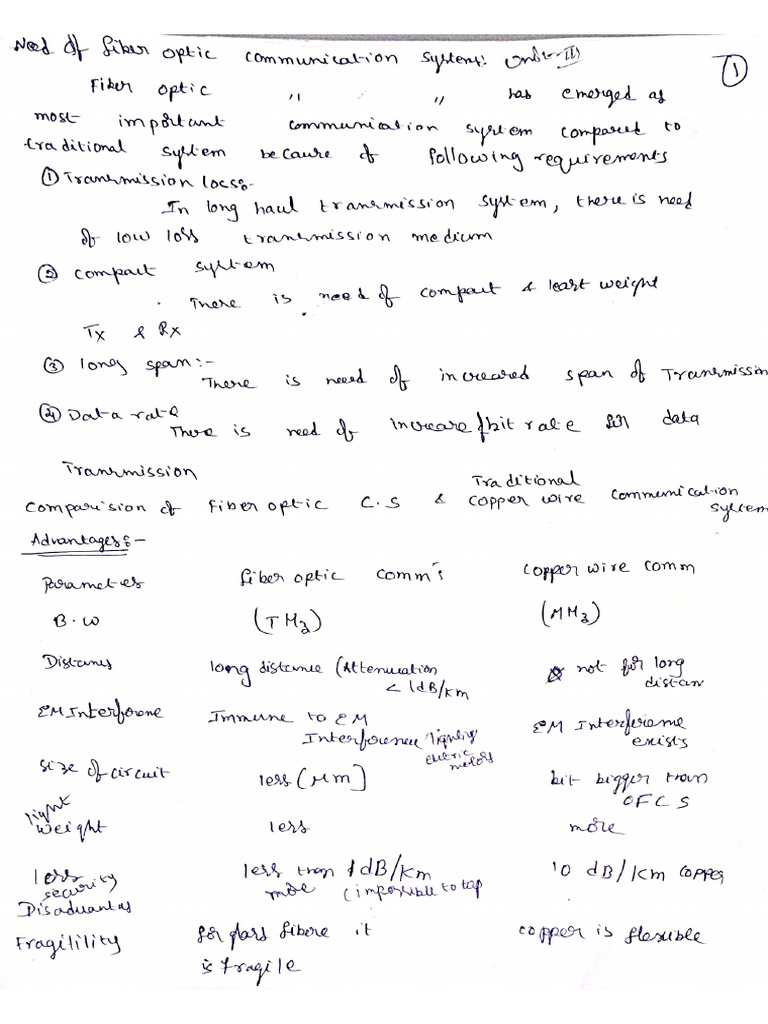 Need of fiber optic communication system: Unit-II
1
Fiber optic " " has emerged as
most important communication system compared to
traditional system because of following requirements
① Transmission loss:-
In long haul transmission system, there is need
of low loss transmission medium
② compact system
There is need of compact & least weight
Tx & Rx
③ long span:-
There is need of increased span of Transmission
④ Data rate
There is need of increase bit rate for data
Transmission
Comparision of Fiber optic C.S & Traditional copper wire communication system
Advantages:-
Parameters fiber optic comm's copper wire comm
B.W (THz) (MHz)
Distans long distance (Attenuation < 1dB/Km not for long distan
EM Interference Immune to EM Interference lightning electric motors EM Interference exists
size of circuit less (μm) bit bigger than OFCS
light weight less more
loss less than 1dB/Km 10 dB/Km copper
security more (impossible to tap
Disadvantas
Fragilility for glass fibers it is fragile copper is flexible